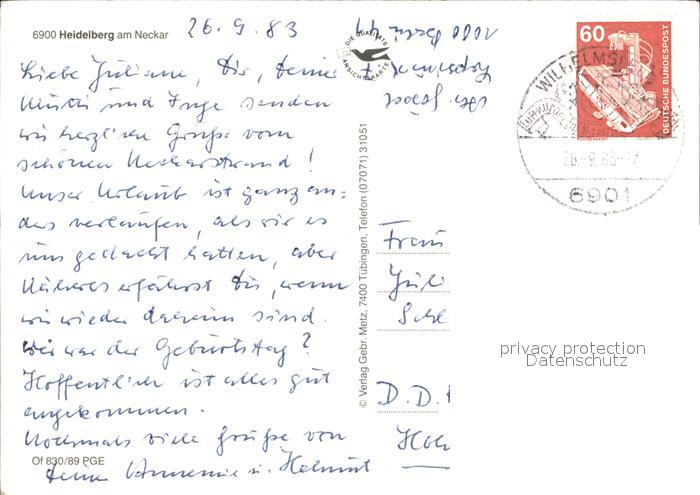 6900 Heidelberg am Neckar
26.9.83
Liebe Juliane, Dir, Deine
Mutti und Inge senden
wir herzliche Grüße vom
schönen Neckarstrand!
Unser Urlaub ist ganz an=
ders verlaufen, als wir es
uns gedacht hatten, aber
Näheres erfährst Du, wenn
wir wieder daheim sind.
Wie war der Geburtstag?
Hoffentlich ist alles gut
angekommen.
Nochmals viele Grüße von
Deine Annemie u. Helmut
Of 830/89 PGE
DIE QUALITÄTS
ANSICHTSKARTE
© Verlag Gebr. Metz, 7400 Tübingen, Telefon (07071) 31051
Abs.
1000 Berlin 49
60
DEUTSCHE BUNDESPOST
WILHELMS
26.-9.83-17
6901
Frau
Juli
Sch
D.D.
privacy protection
Datenschutz